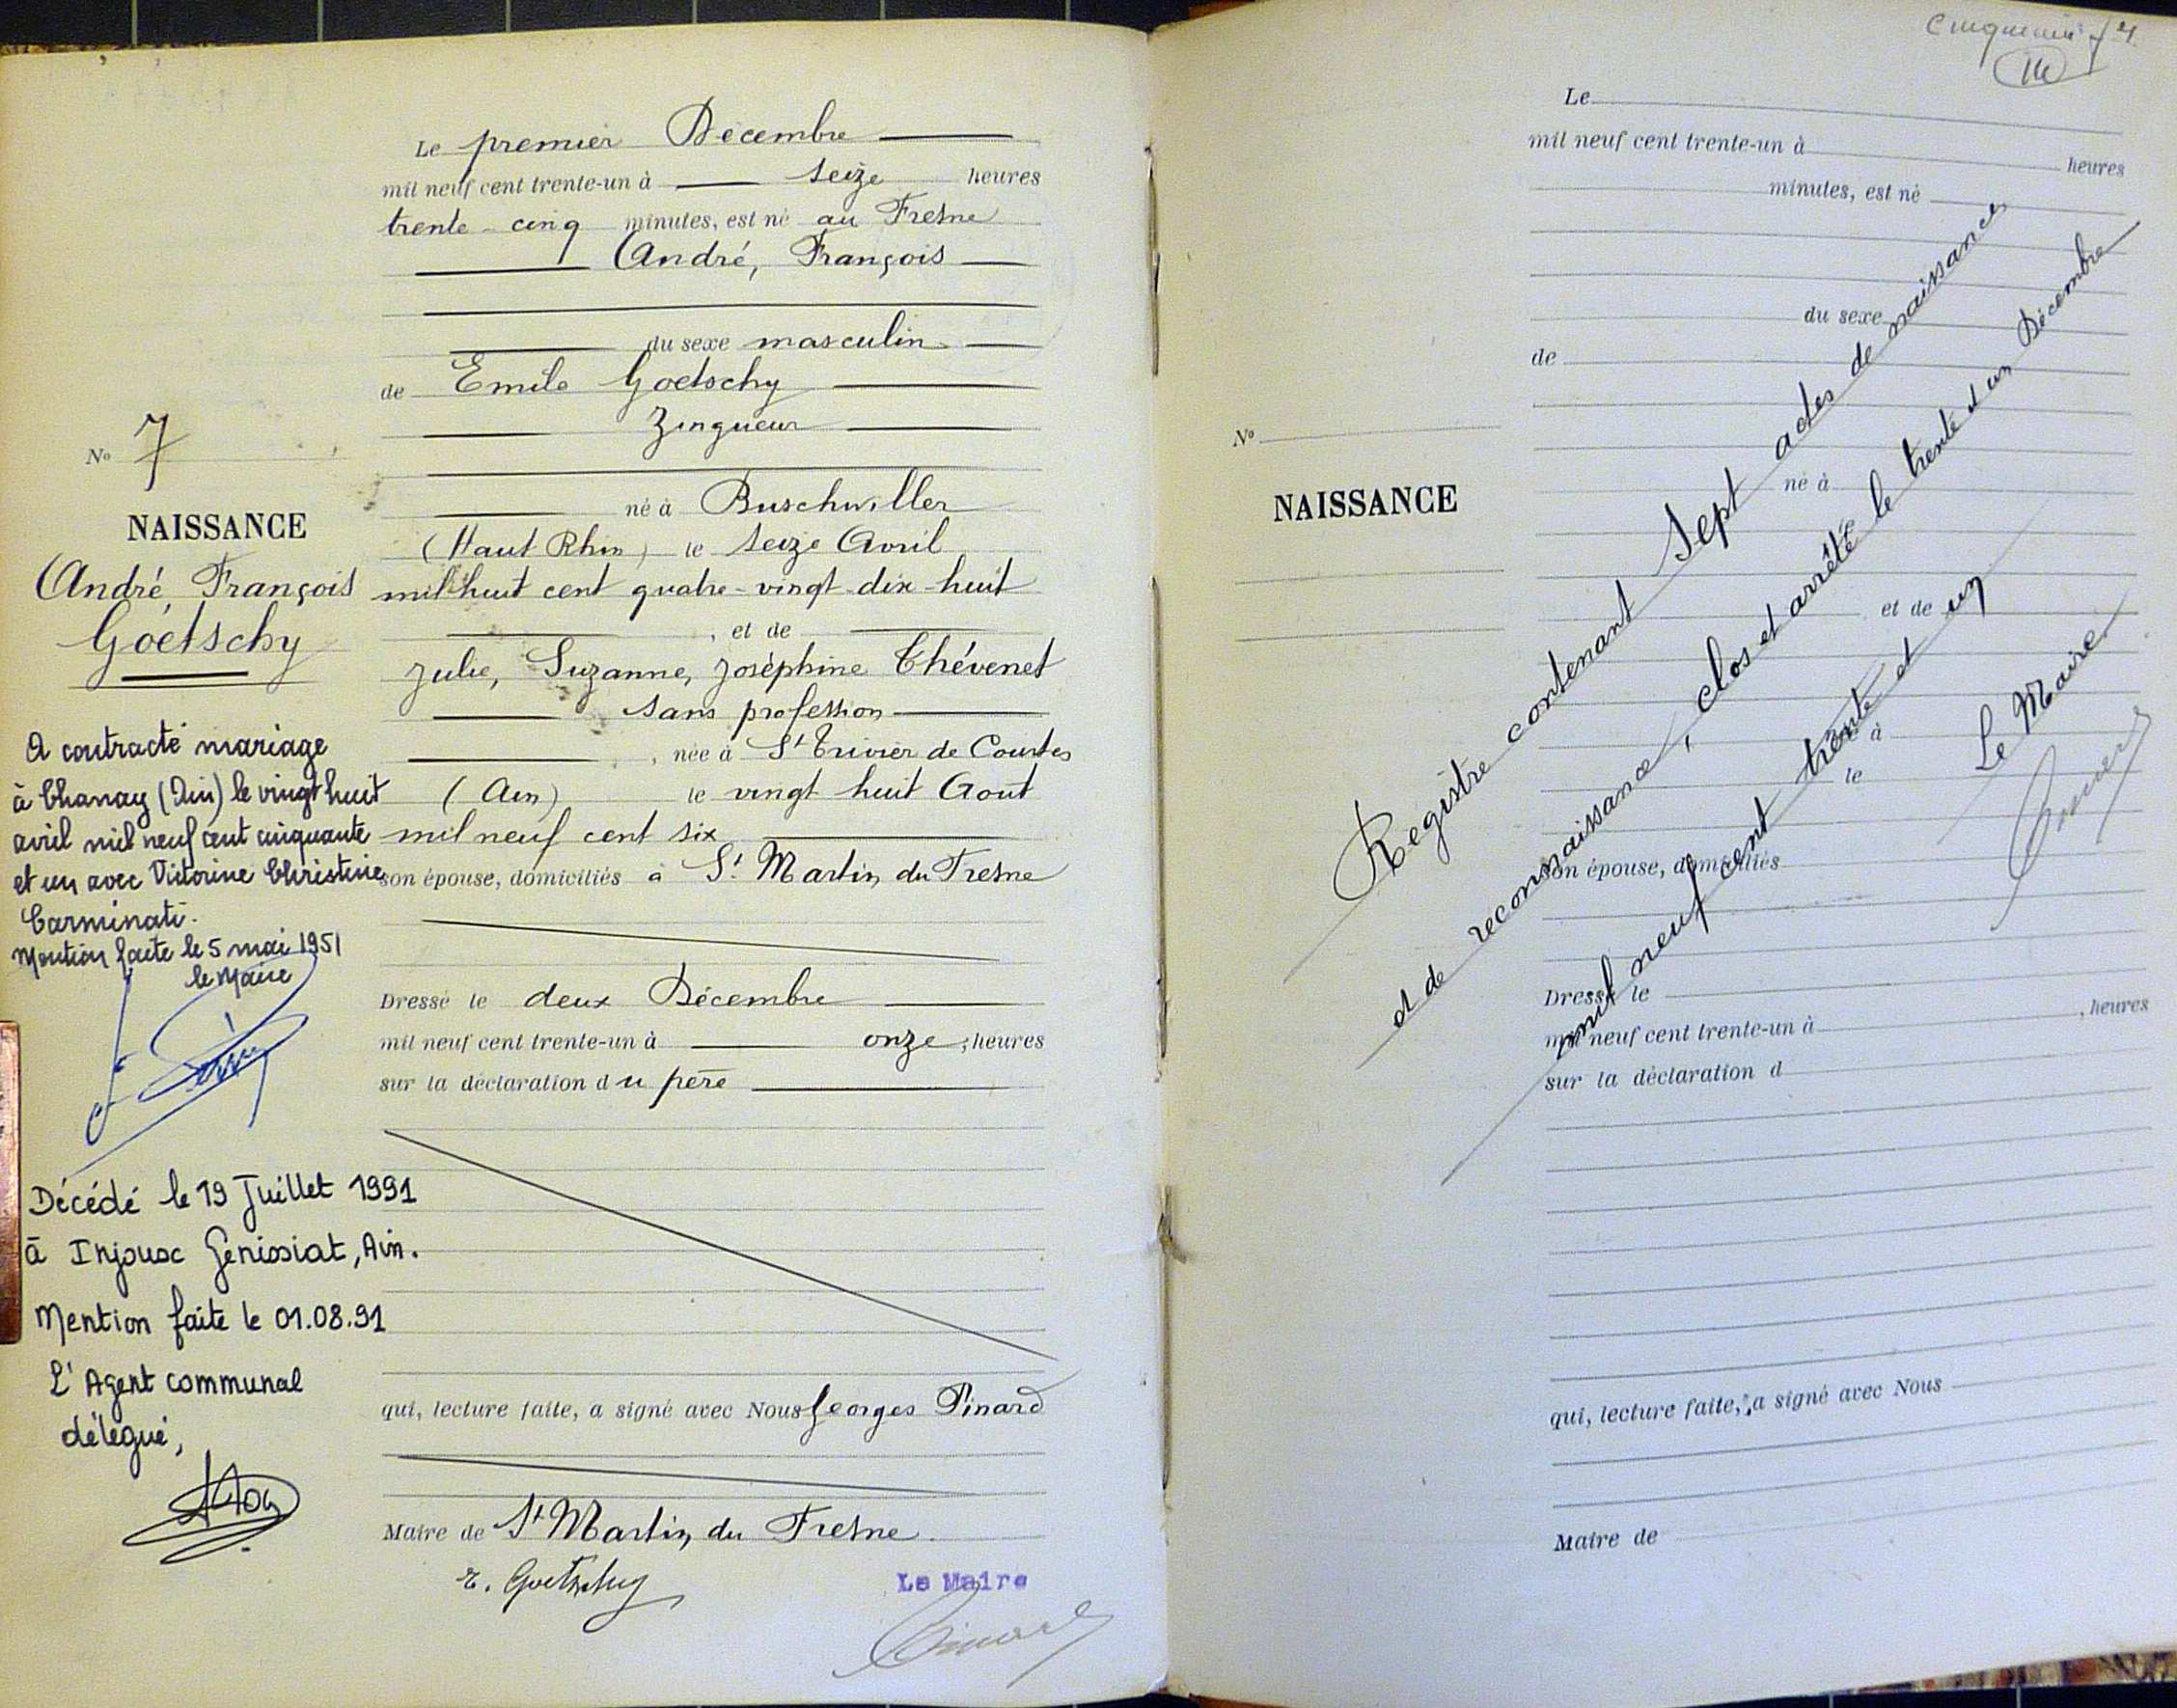 Le premier Décembre
mil neuf cent trente-un à seize heures
trente-cinq minutes, est né au Fresne
André, François
du sexe masculin
de Emile Goetschy
Zingueur
né à Buschwiller
(Haut Rhin) le seize Avril
mil huit cent quatre-vingt-dix-huit
, et de
Julie, Suzanne, Joséphine Thévenet
sans profession
, née à St Trivier de Courtes
(Ain) le vingt huit Aout
mil neuf cent six
son épouse, domiciliés à St Martin du Fresne
Dressé le deux Décembre
mil neuf cent trente-un à onze, heures
sur la déclaration du père
qui, lecture faite, a signé avec Nous Georges Pinard
Maire de St Martin du Fresne
E. Goetschy
Le Maire
Pinard
No 7
NAISSANCE
André François
Goetschy
A contracté mariage
à Chanay (Ain) le vingt huit
avril mil neuf cent cinquante
et un avec Victorine Christine
Carminati.
Mention faite le 5 mai 1951
le Maire
Décédé le 19 Juillet 1991
à Injoux Génissiat, Ain.
Mention faite le 01.08.91
L'Agent communal
délégué,
Le
mil neuf cent trente-un à heures
minutes, est né
du sexe
de
né à
, et de
née à
le
son épouse, domiciliés
Dressé le
mil neuf cent trente-un à , heures
sur la déclaration d
qui, lecture faite, a signé avec Nous
Maire de
No
NAISSANCE
Registre contenant sept actes de naissances
et de reconnaissance, clos et arrêté le trente et un Décembre
mil neuf cent trente et un
Le Maire